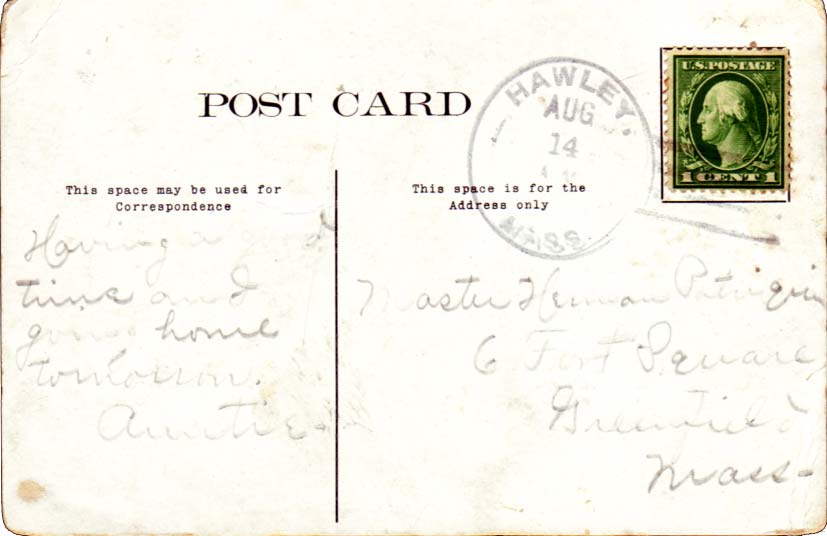 POST CARD
HAWLEY.
AUG
14
MASS.
U.S. POSTAGE
1 CENT 1
This space may be used for
Correspondence
This space is for the
Address only
Having a good
time and
going home
tomorrow.
Auntie.
Master Herman
6 Fort Square,
Greenfield
Mass-